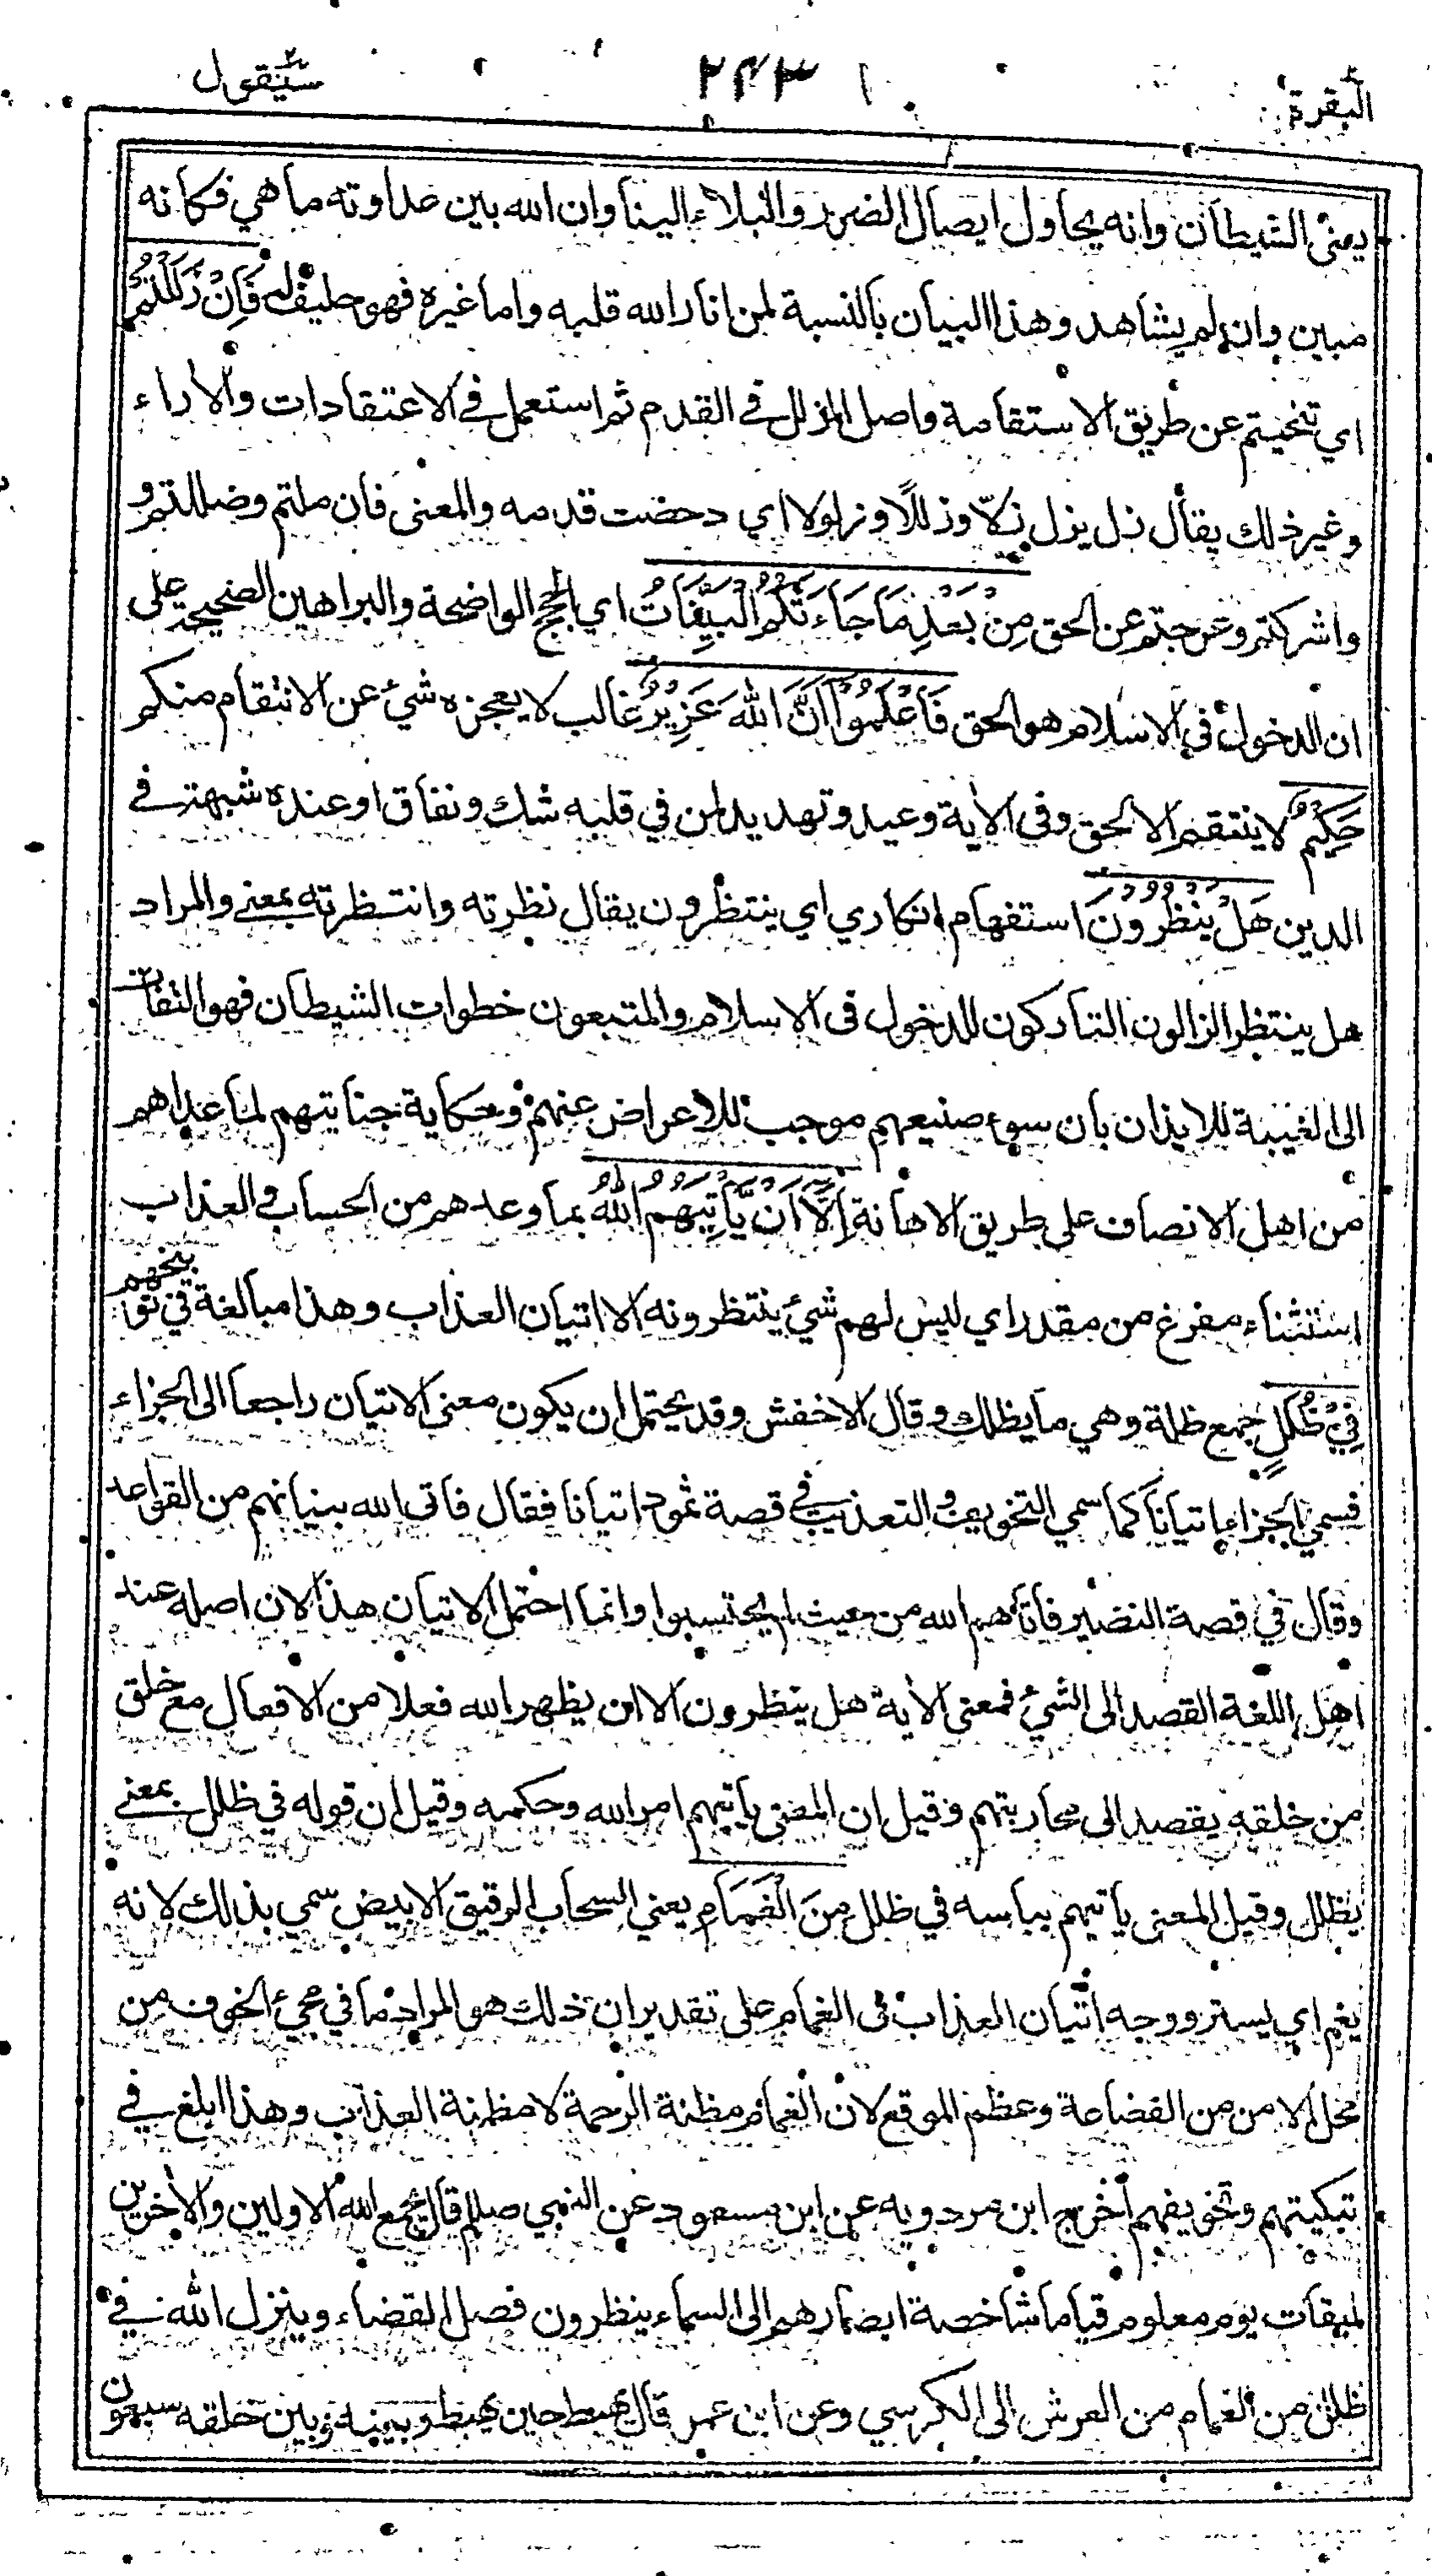 البقرة ٢٤٣ سيقول
يعنى الشيطان وانه يحاول ايصال الضرر والبلاء الينا وان الله بين عداوته ما هي فكانه
مبين وان لم يشاهد وهذا البيان بالنسبة لمن انار الله قلبه واما غيره فهو حليف له فَاِنْ زَلَلْتُمْ
اي تنحيتم عن طريق الاستقامة واصل الزلل في القدم ثم استعمل في الاعتقادات والاراء
وغير ذلك يقال زل يزل زلّا وزللًا وزلولا اي دحضت قدمه والمعنى فان ملتم وضللتم و
واشركتم وعرجتم عن الحق مِنْ بَعْدِ مَا جَاءَتْكُمُ الْبَيِّنَاتُ اي الحجج الواضحة والبراهين الصحيحة على
ان الدخول في الاسلام هو الحق فَاعْلَمُوْا اَنَّ اللهَ عَزِيْزٌ غالب لا يعجزه شيء عن الانتقام منكم
حَكِيْمٌ لا ينتقم الا لحق وفي الاية وعيد وتهديد لمن في قلبه شك ونفاق او عنده شبهة في
الدين هَلْ يَنْظُرُوْنَ استفهام انكاري اي ينتظرون يقال نظرته وانتظرته بمعنى والمراد
هل ينتظر الزالون التاركون للدخول في الاسلام والمتبعون خطوات الشيطان فهو التفات
الى الغيبة للايذان بان سوء صنيعهم موجب للاعراض عنهم وحكاية جنايتهم لما عداهم
من اهل الانصاف على طريق الاهانة اِلَّا اَنْ يَّاْتِيَهُمُ اللهُ بما وعدهم من الحساب والعذاب
استثناء مفرغ من مقدر اي ليس لهم شيء ينتظرونه الا اتيان العذاب وهذا مبالغة في توبيخهم
فِيْ ظُلَلٍ جمع ظلة وهي ما يظلك وقال الاخفش وقد يحتمل ان يكون معنى الاتيان راجعا الى الجزاء
فسمي الجزاء اتيانا كما سمي التخويف والتعذيب في قصة ثمود اتيانا فقال فاتى الله بنيانهم من القواعد
وقال في قصة النضير فاتاهم الله من حيث لم يحتسبوا وانما احتمل الاتيان هذا لان اصله عند
اهل اللغة القصد الى الشيء فمعنى الاية هل ينظرون الا ان يظهر الله فعلا من الافعال مع خلق
من خلقه يقصد الى محاربتهم وقيل ان المعنى ياتيهم امر الله وحكمه وقيل ان قوله في ظلل بمعنى
يظلل وقيل المعنى ياتيهم بباسه في ظلل مِنَ الْغَمَامِ يعني السحاب الرقيق الابيض سمي بذلك لانه
يغم اي يستر ووجه اتيان العذاب في الغمام على تقدير ان ذلك هو المراد ما في مجيء الخوف من
محل الامن من الفضاعة وعظم الموقع لان الغمام مظنة الرحمة لا مظنة العذاب وهذا ابلغ في
تبكيتهم وتخويفهم اخرج ابن مردويه عن ابن مسعود عن النبي صللم قال يجمع الله الاولين والاخرين
لميقات يوم معلوم قياما شاخصة ابصارهم الى السماء ينظرون فصل القضاء وينزل الله في
ظلل من الغمام من العرش الى الكرسي وعن ابن عمر قال يهبط حين يهبط وبينه وبين خلقه سبعون